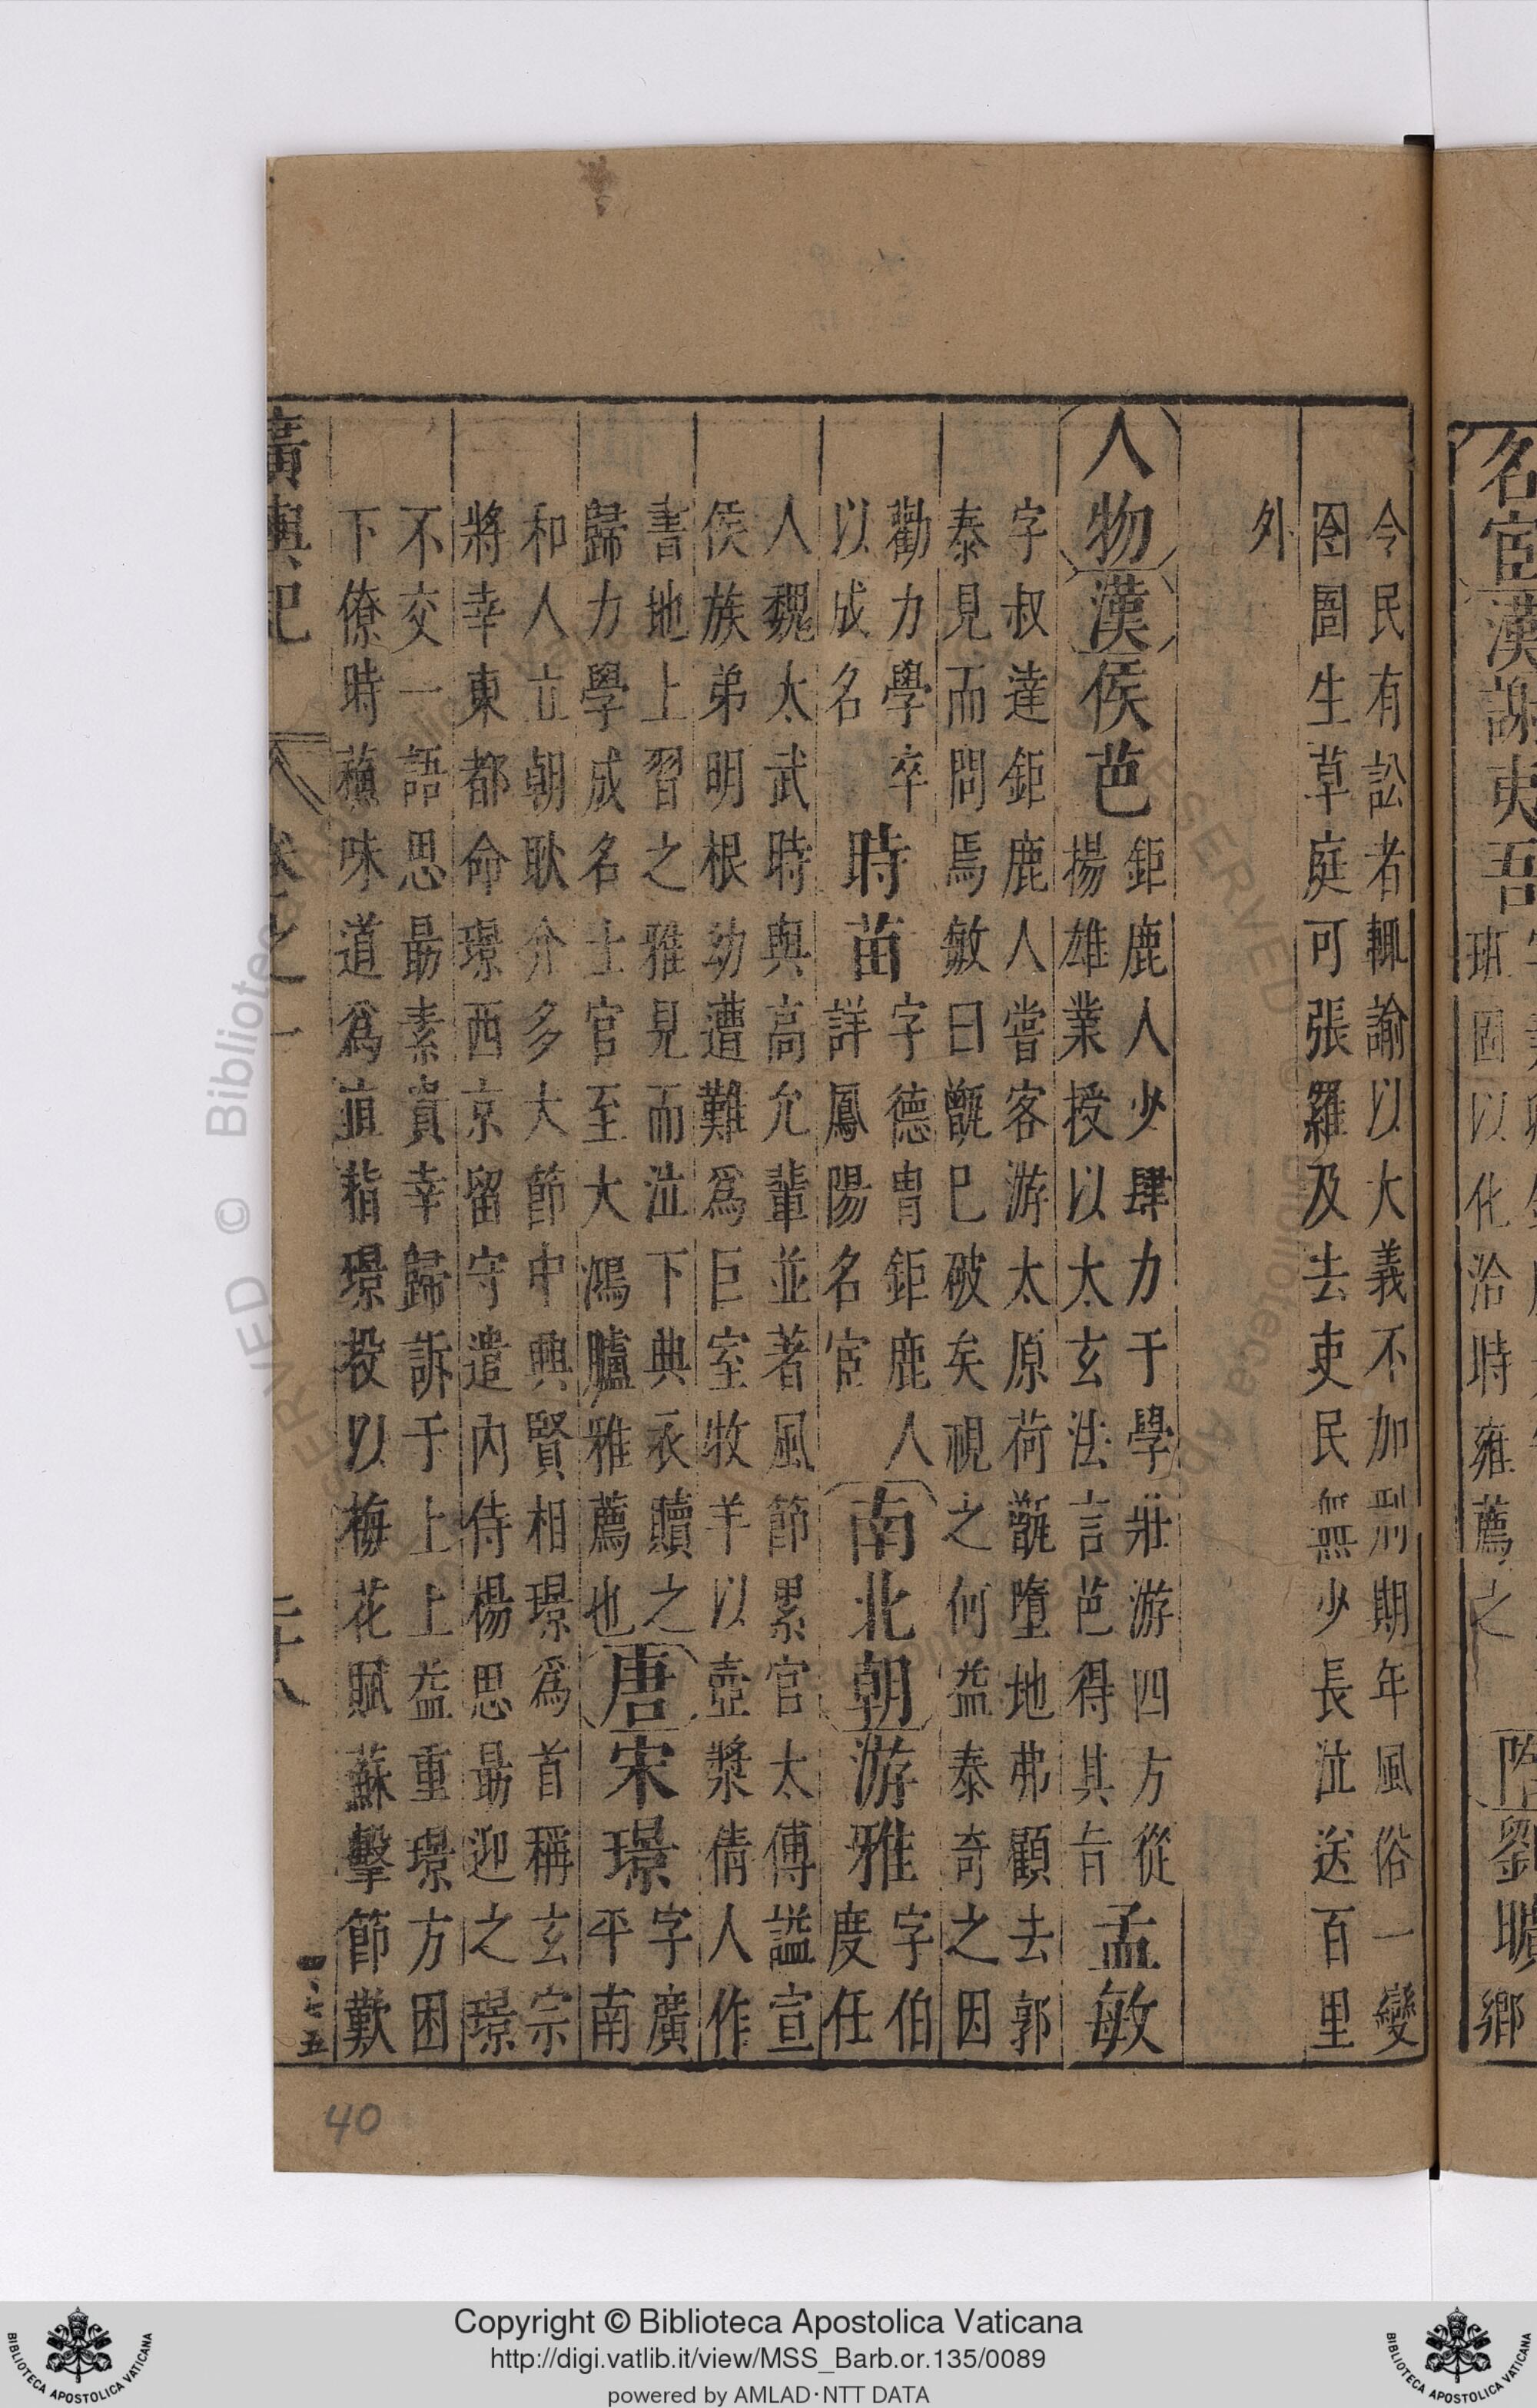 名宦漢謝夷吾
班固以化洽時雍薦之
隋劉曠
鄉
令民有訟者輒諭以大義不加刑期年風俗一變
囹圄生草庭可張羅及去吏民無少長泣送百里
外
人物漢侯芭
鉅鹿人少肆力于學壯游四方從
揚雄業授以太玄法言芭得其旨
孟敏
字叔達鉅鹿人嘗客游太原荷甑墮地弗顧去郭
泰見而問焉敏曰甑已破矣視之何益泰奇之因
勸力學卒
以成名
時苗
字德胄鉅鹿人
詳鳳陽名宦
南北朝游雅
字伯
度任
人魏太武時與高允輩並著風節累官太傅謚宣
侯族弟明根幼遭難爲巨室牧羊以壺漿倩人作
書地上習之雅見而泣下典衣贖之
歸力學成名士官至大鴻臚雅薦也
唐宋璟
字廣
平南
和人立朝耿介多大節中興賢相璟爲首稱玄宗
將幸東都命璟西京留守遣內侍楊思勗迎之璟
不交一語思勗素貴幸歸訴于上上益重璟方困
下僚時蘓味道爲直指璟投以梅花賦蘇擊節歎
廣輿記
卷之一
二十八
四、七五
40
Copyright © Biblioteca Apostolica Vaticana
http://digi.vatlib.it/view/MSS_Barb.or.135/0089
powered by AMLAD·NTT DATA
BIBLIOTECA APOSTOLICA VATICANA
BIBLIOTECA APOSTOLICA VATICANA